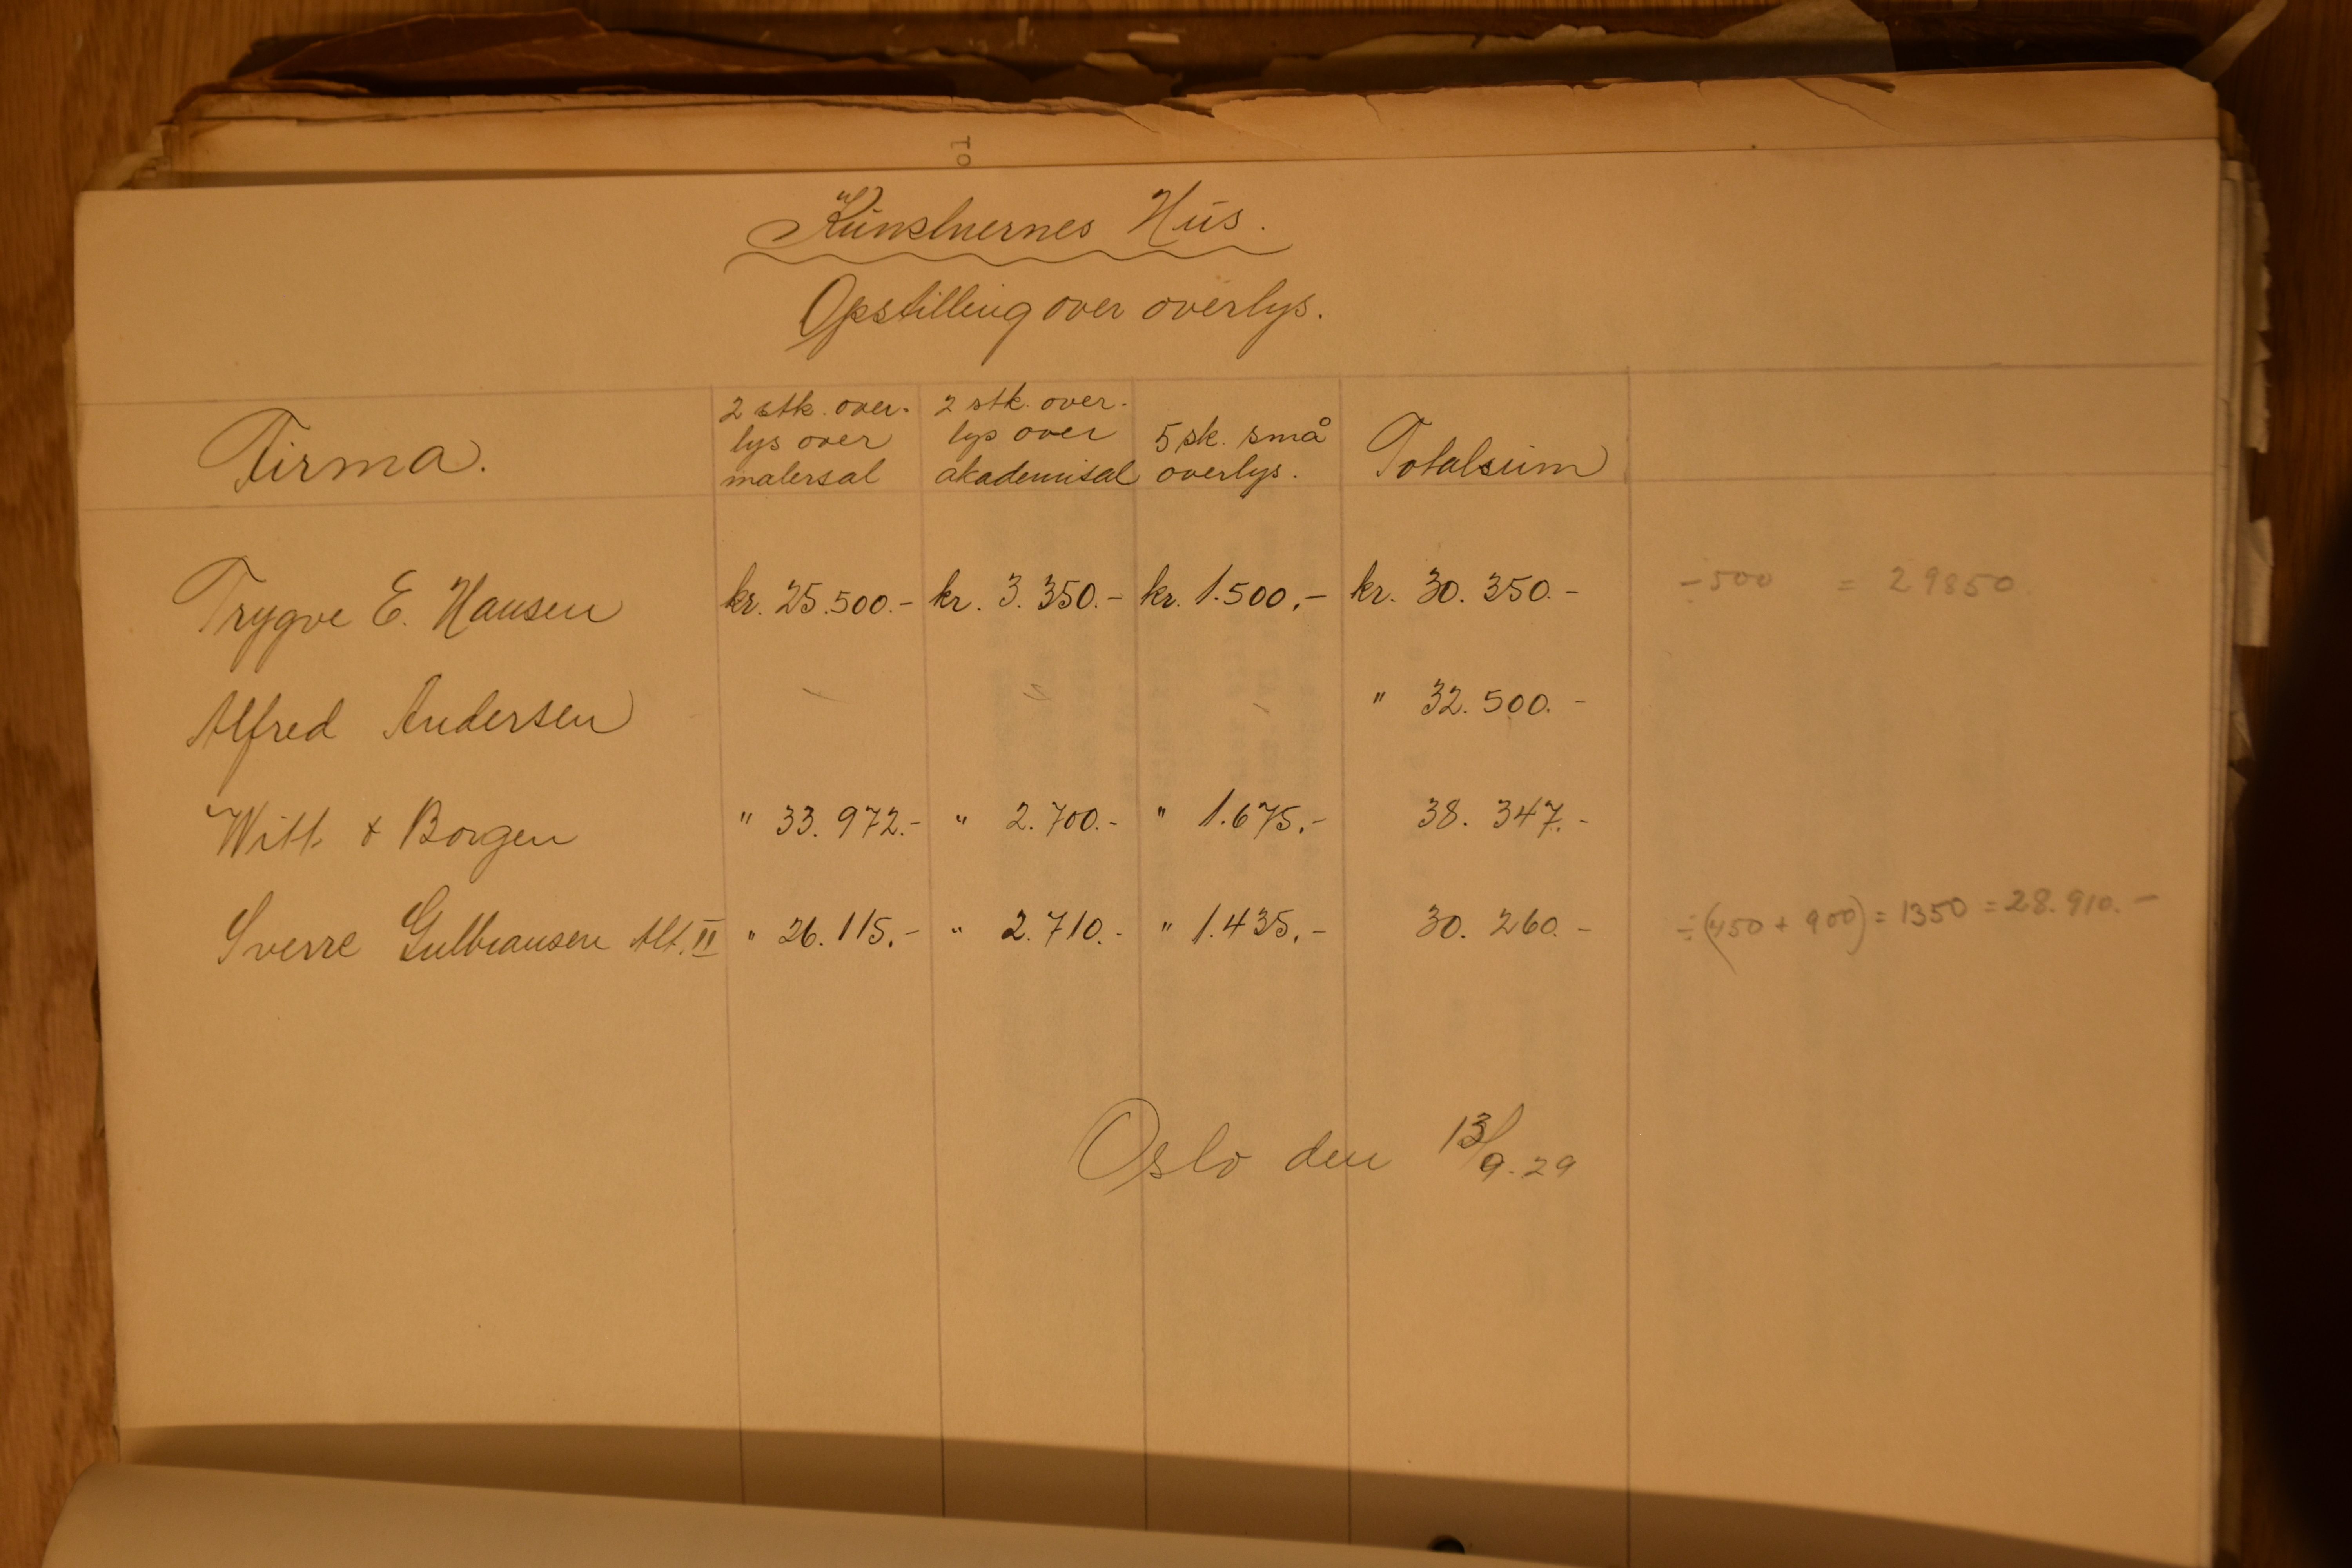 to
Kunstnernes Hus.
Opstilling over overlys.
Firma.
2 stk. over-
lys over
malersal
2 stk. over-
lys over
akademisal
5 stk. små
overlys.
Totalsum
Trygve E. Hansen kr. 25.500.- kr. 3.350.- kr. 1.500.- kr. 30.350.- - 500 = 29850.
Alfred Andersen - - - " 32.500.-
Witt & Borgen " 33.972.- " 2.700.- " 1.675.- 38.347.-
Sverre Gulbransen Alt. II " 26.115.- " 2.710.- " 1.435.- 30.260.- ÷(450 + 900) = 1350 = 28.910.-
Oslo den 13/9.29